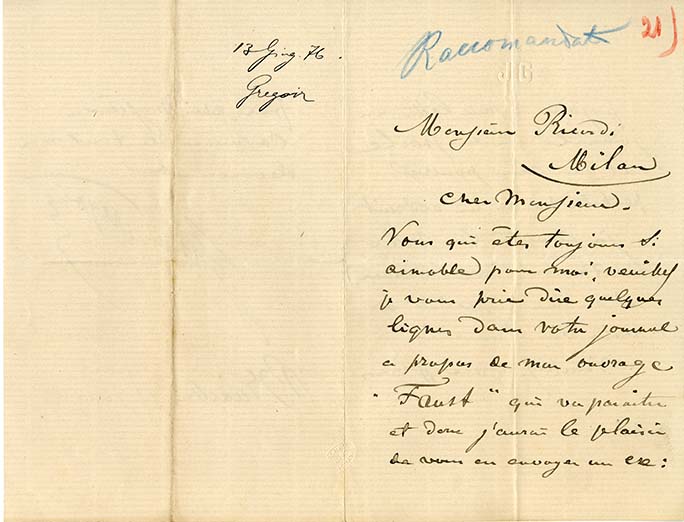 13 Giug. 76.
Gregoir
Raccomandat
21)
JG
Monsieur Ricordi
Milan
Cher Monsieur.
Vous qui êtes toujours si
aimable pour moi, veuillez
je vous prie dire quelques
lignes dans votre journal
a propos de mon ouvrage
"Faust" qui va paraitre
et dont j'aurai le plaisir
de vous en envoyer un ex: